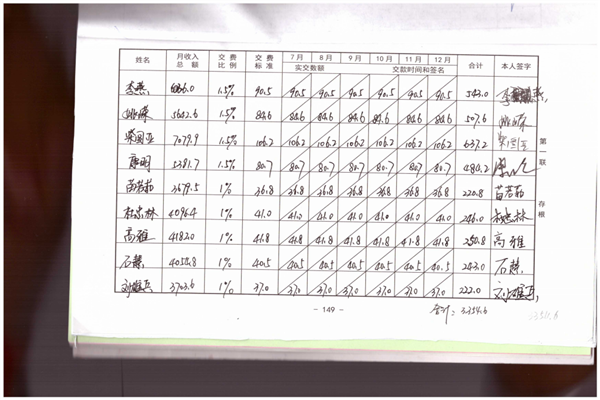 姓名 月收入总额 交费比例 交费标准 7月 8月 9月 10月 11月 12月 合计 本人签字
实交数额 交款时间和签名
李燕 1.5% 90.5 90.5 90.5 90.5 90.5 90.5 90.5 543.0 李燕
姚嵘 5642.6 1.5% 84.6 84.6 84.6 84.6 84.6 84.6 84.6 507.6 姚嵘
柴国亚 7079.9 1.5% 106.2 106.2 106.2 106.2 106.2 106.2 106.2 637.2 柴国亚
康明 5381.7 1.5% 80.7 80.7 80.7 80.7 80.7 80.7 80.7 484.2
苗若茹 3679.5 1% 36.8 36.8 36.8 36.8 36.8 36.8 36.8 220.8 苗若茹
杜志林 4096.4 1% 41.0 41.0 41.0 41.0 41.0 41.0 41.0 246.0 杜志林
高雅 4182.0 1% 41.8 41.8 41.8 41.8 41.8 41.8 41.8 250.8 高雅
石慧 4054.8 1% 40.5 40.5 40.5 40.5 40.5 40.5 40.5 243.0 石慧
刘雄兵 3703.6 1% 37.0 37.0 37.0 37.0 37.0 37.0 37.0 222.0 刘雄兵
第一联 存根
- 149 -
合计: 3354.6